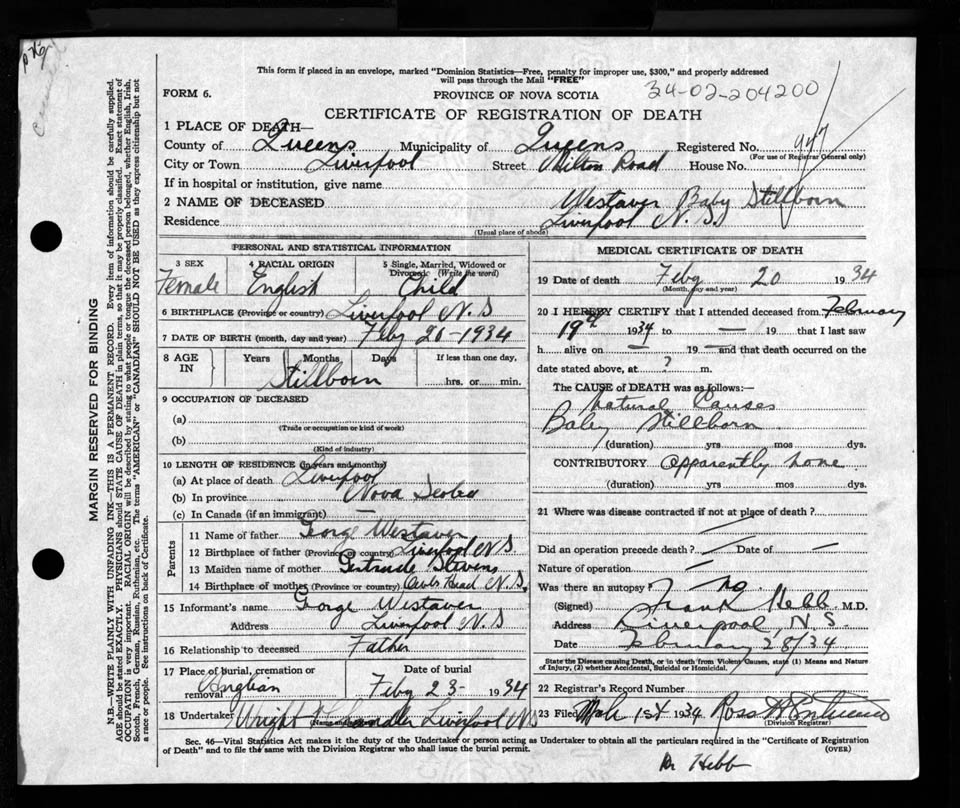 This form if placed in an envelope, marked "Dominion Statistics—Free, penalty for improper use, $300," and properly addressed
will pass through the Mail "FREE"
FORM 6.
PROVINCE OF NOVA SCOTIA
34-02-204200
CERTIFICATE OF REGISTRATION OF DEATH
1 PLACE OF DEATH—
County of Queens Municipality of Queens Registered No. 947
(For use of Registrar General only)
City or Town Liverpool Street Milton Road House No.
If in hospital or institution, give name
2 NAME OF DECEASED Westaver Baby Stillborn
Residence Liverpool N.S
(Usual place of abode)
PERSONAL AND STATISTICAL INFORMATION
3 SEX Female
4 RACIAL ORIGIN English
5 Single, Married, Widowed or Divorced (Write the word) Child
6 BIRTHPLACE (Province or country) Liverpool N.S
7 DATE OF BIRTH (month, day and year) Feby 20-1934
8 AGE IN Years Months Days If less than one day,
Stillborn hrs. or min.
9 OCCUPATION OF DECEASED
(a)
(Trade or occupation or kind of work)
(b)
(Kind of industry)
10 LENGTH OF RESIDENCE (in years and months)
(a) At place of death Liverpool
(b) In province Nova Scotia
(c) In Canada (if an immigrant) —
Parents
11 Name of father Gorge Westaver
12 Birthplace of father (Province or country) Liverpool N.S
13 Maiden name of mother Gertrude Stevens
14 Birthplace of mother (Province or country) Owls Head N.S.
15 Informant's name Gorge Westaver
Address Liverpool N.S
16 Relationship to deceased Father
17 Place of burial, cremation or removal Anglian
Date of burial Feby 23- 1934
18 Undertaker Wright Liverpool NS
MEDICAL CERTIFICATE OF DEATH
19 Date of death Feby 20 1934
(Month, day and year)
20 I HEREBY CERTIFY that I attended deceased from February
19th 1934 to — 19 that I last saw
h alive on — 19 — and that death occurred on the
date stated above, at ? m.
The CAUSE of DEATH was as follows:—
Natural Causes
Baby Stillborn
(duration) yrs mos dys.
CONTRIBUTORY apparently none
(duration) yrs mos dys.
21 Where was disease contracted if not at place of death?
Did an operation precede death? Date of —
Nature of operation
Was there an autopsy? no
(Signed) Frank Hebb M.D.
Address Liverpool, N.S.
Date February 28/34
State the Disease causing Death, or in death from Violent Causes, state (1) Means and Nature
of Injury, (2) whether Accidental, Suicidal or Homicidal.
22 Registrar's Record Number
23 Filed Mch 1st 1934 Ross
(Division Registrar)
Sec. 46—Vital Statistics Act makes it the duty of the Undertaker or person acting as Undertaker to obtain all the particulars required in the "Certificate of Registration
of Death" and to file the same with the Division Registrar who shall issue the burial permit.
(OVER)
Dr Hebb
MARGIN RESERVED FOR BINDING
N.B.—WRITE PLAINLY WITH UNFADING INK—THIS IS A PERMANENT RECORD. Every item of information should be carefully supplied.
AGE should be stated EXACTLY. PHYSICIANS should STATE CAUSE OF DEATH in plain terms, so that it may be properly classified. Exact statement of
OCCUPATION is very important. RACIAL ORIGIN will be described by stating to what people or tongue the deceased person belonged, whether English, Irish,
Scotch, French, German, Russian, Ruthenian, etc. The terms "AMERICAN" or "CANADIAN" SHOULD NOT BE USED as they express citizenship but not
a race or people. See instructions on back of Certificate.